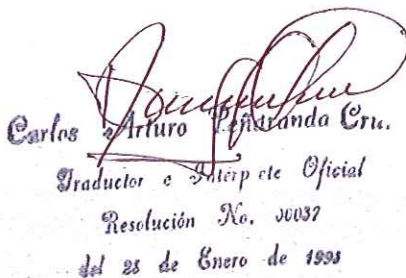 Carlos Arturo Peñaranda Cru.
Traductor e Intérpete Oficial
Resolución No. 00037
del 28 de Enero de 1998